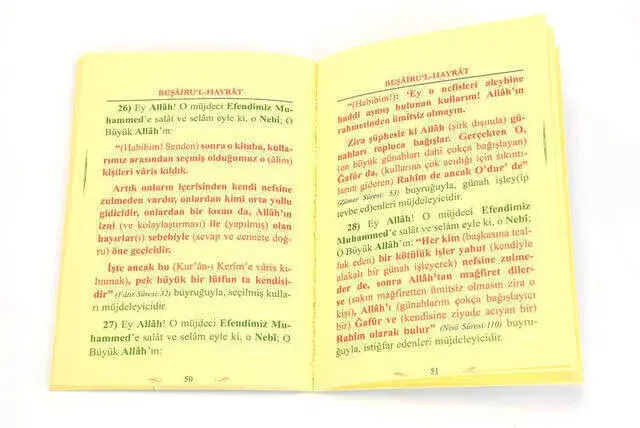 BEŞÂİRU'L-HAYRÂT
26) Ey Allâh! O müjdeci Efendimiz Mu-
hammed'e salât ve selâm eyle ki, o Nebî; O
Büyük Allâh'ın:
"(Habîbim! Senden) sonra o kitaba, kulla-
rımız arasından seçmiş olduğumuz o (âlim)
kişileri vâris kıldık.
Artık onların içerisinden kendi nefsine
zulmeden vardır, onlardan kimi orta yollu
gidicidir, onlardan bir kısmı da, Allâh'ın
izni (ve kolaylaştırması) ile (yapılmış) olan
hayırlar(ı) sebebiyle (sevap ve cennete doğ-
ru) öne geçicidir.
İşte ancak bu (Kur'ân-ı Kerîm'e vâris kı-
lınmak), pek büyük bir lütfun ta kendisi-
dir" (Fâtır Sûresi:32) buyruğuyla, seçilmiş kulla-
rı müjdeleyicidir.
27) Ey Allâh! O müjdeci Efendimiz Mu-
hammed'e salât ve selâm eyle ki, o Nebî; O
Büyük Allâh'ın:
50
BEŞÂİRU'L-HAYRÂT
"(Habîbim!): 'Ey o nefisleri aleyhine
haddi aşmış bulunan kullarım! Allâh'ın
rahmetinden ümitsiz olmayın.
Zira şüphesiz ki Allâh (şirk dışında) gü-
nahları topluca bağışlar. Gerçekten O,
(en büyük günahları dahi çokça bağışlayan)
Ğafûr da, (kullarına çok acıdığı için sıkıntı-
larını gideren) Rahîm de ancak O'dur' de"
(Zümer Sûresi: 53) buyruğuyla, günah işley(ip
tevbe ed)enleri müjdeleyicidir.
28) Ey Allâh! O müjdeci Efendimiz
Muhammed'e salât ve selâm eyle ki, o Nebî;
O Büyük Allâh'ın: "Her kim (başkasına teal-
luk eden) bir kötülük işler yahut (kendiyle
alakalı bir günah işleyerek) nefsine zulme-
der de, sonra Allâh'tan mağfiret diler-
se (sakın mağfiretten ümitsiz olmasın zira o
kişi), Allâh'ı (günahlarını çokça bağışlayıcı
bir) Ğafûr ve (kendisine ziyade acıyan bir)
Rahîm olarak bulur" (Nisâ Sûresi:110) buyru-
ğuyla, istiğfar edenleri müjdeleyicidir.
51